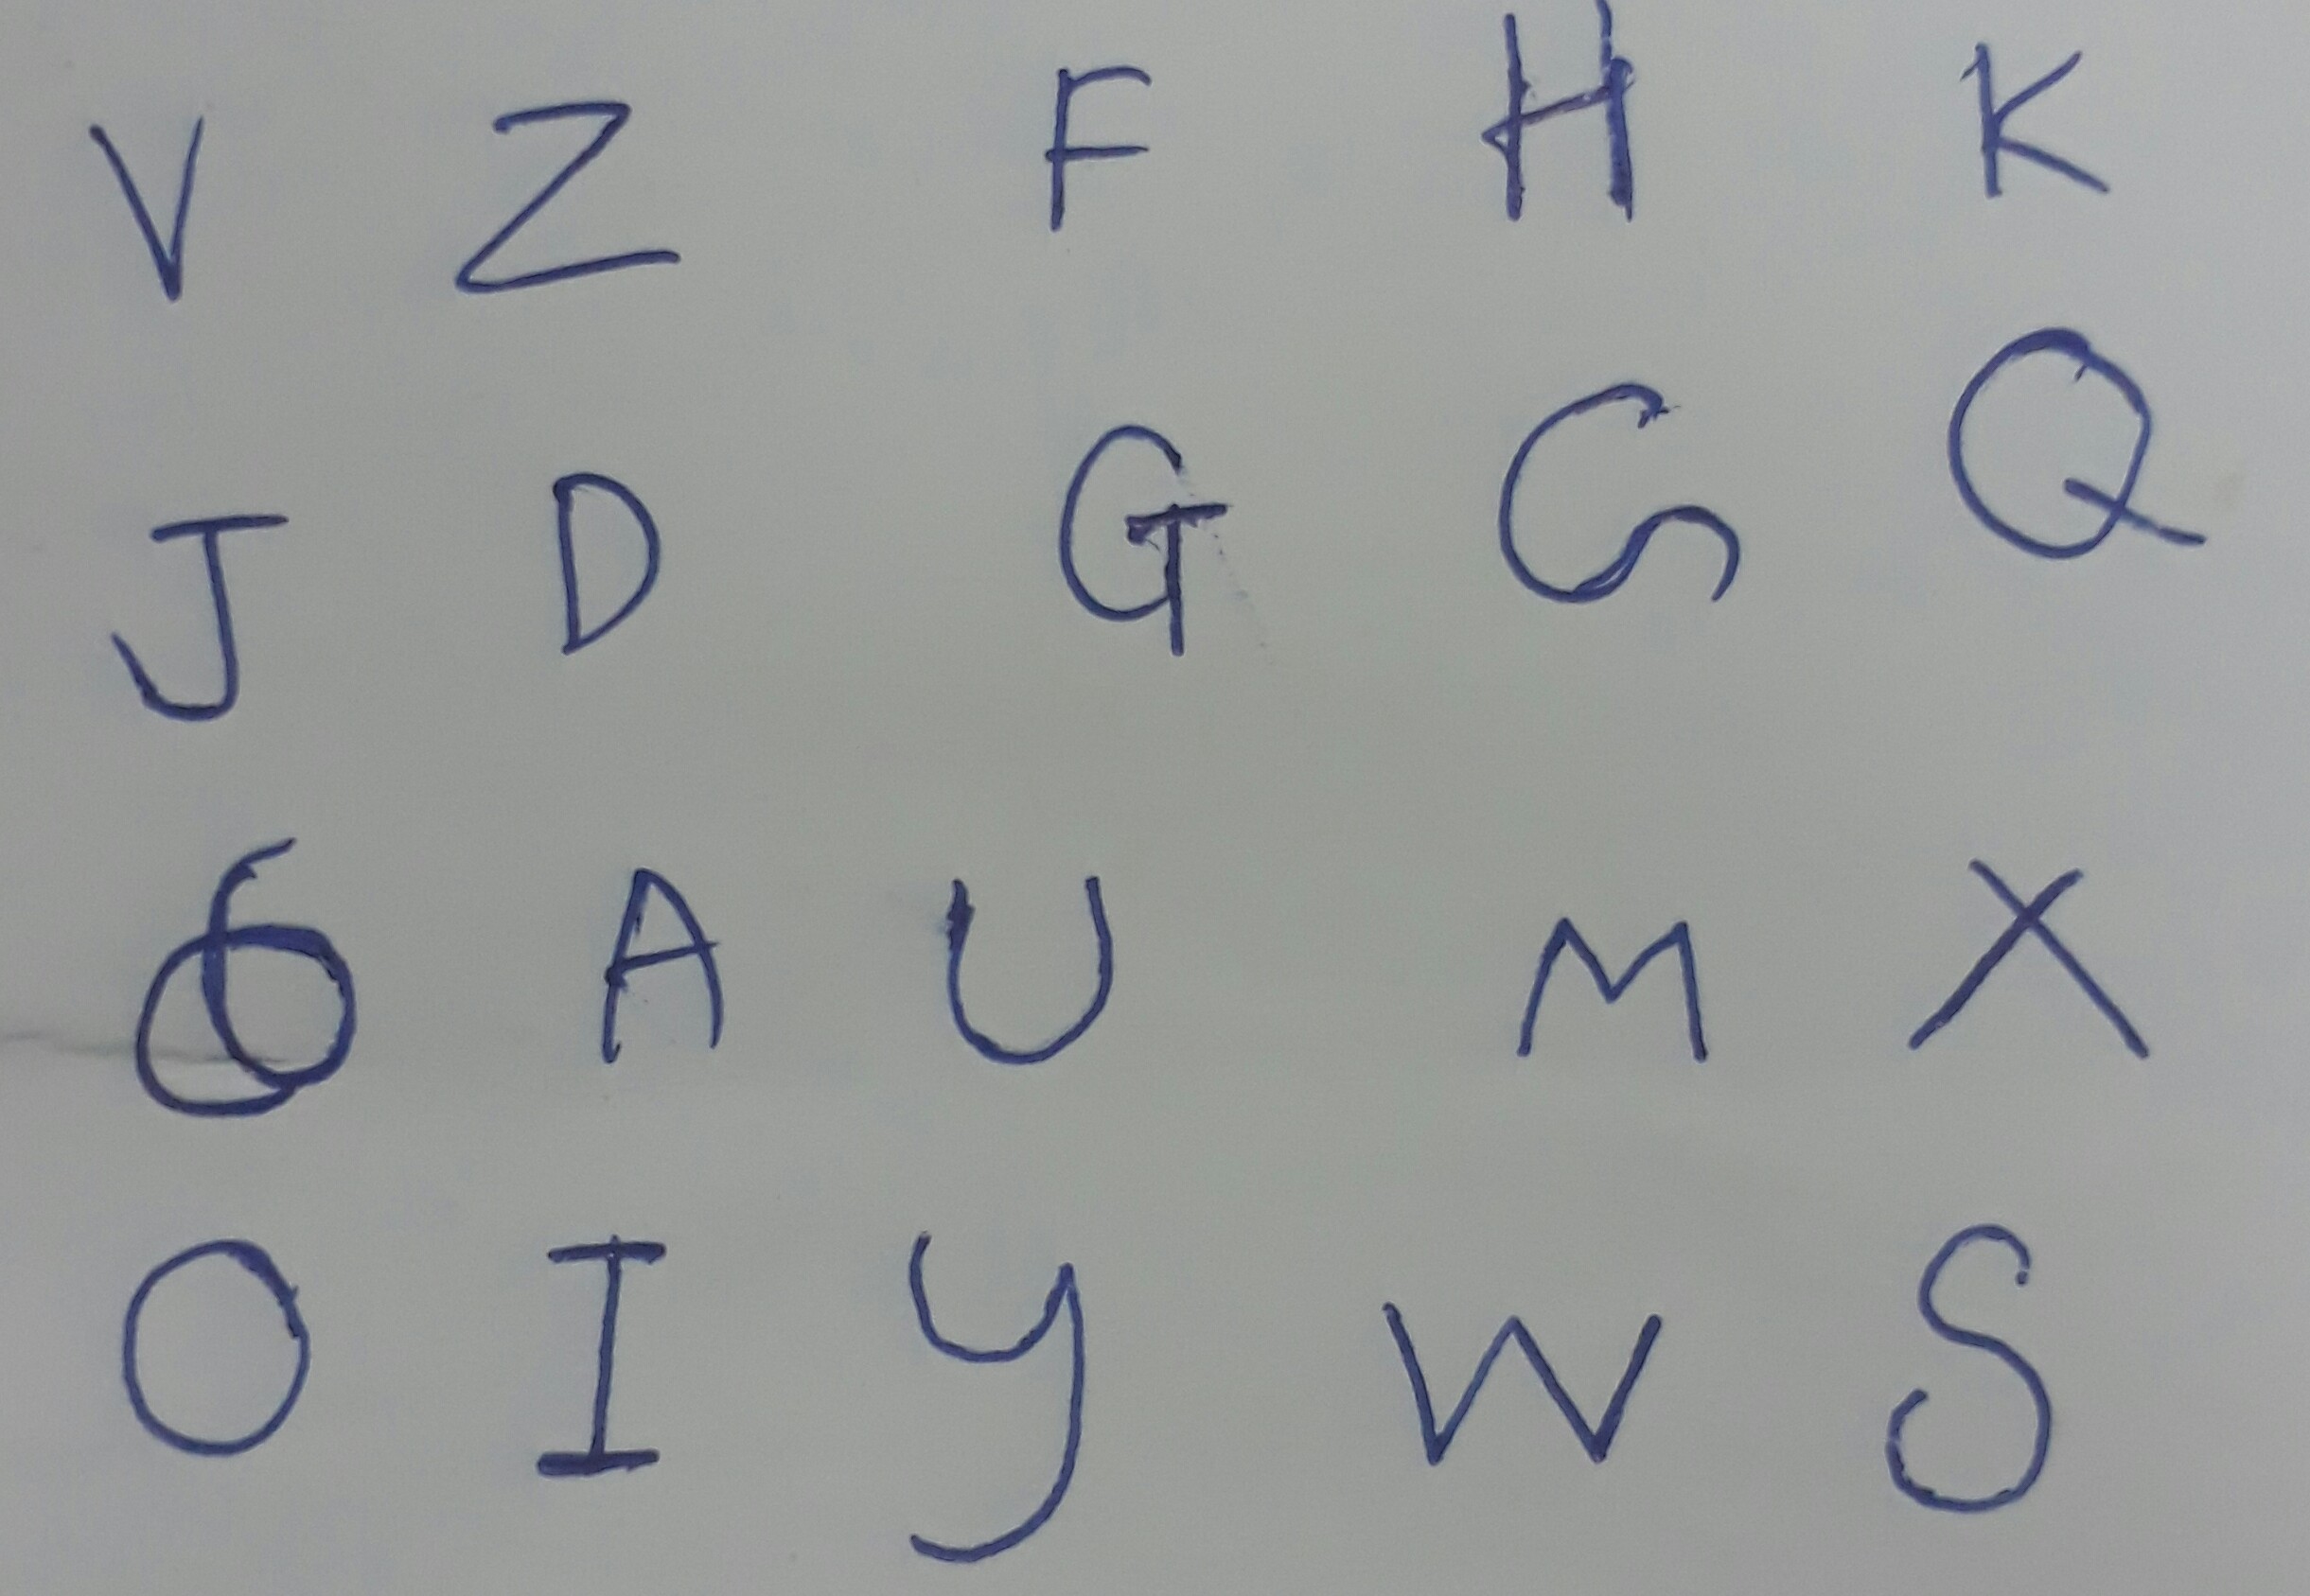 V Z F H K
J D G G Q
A U M X
O I Y W S